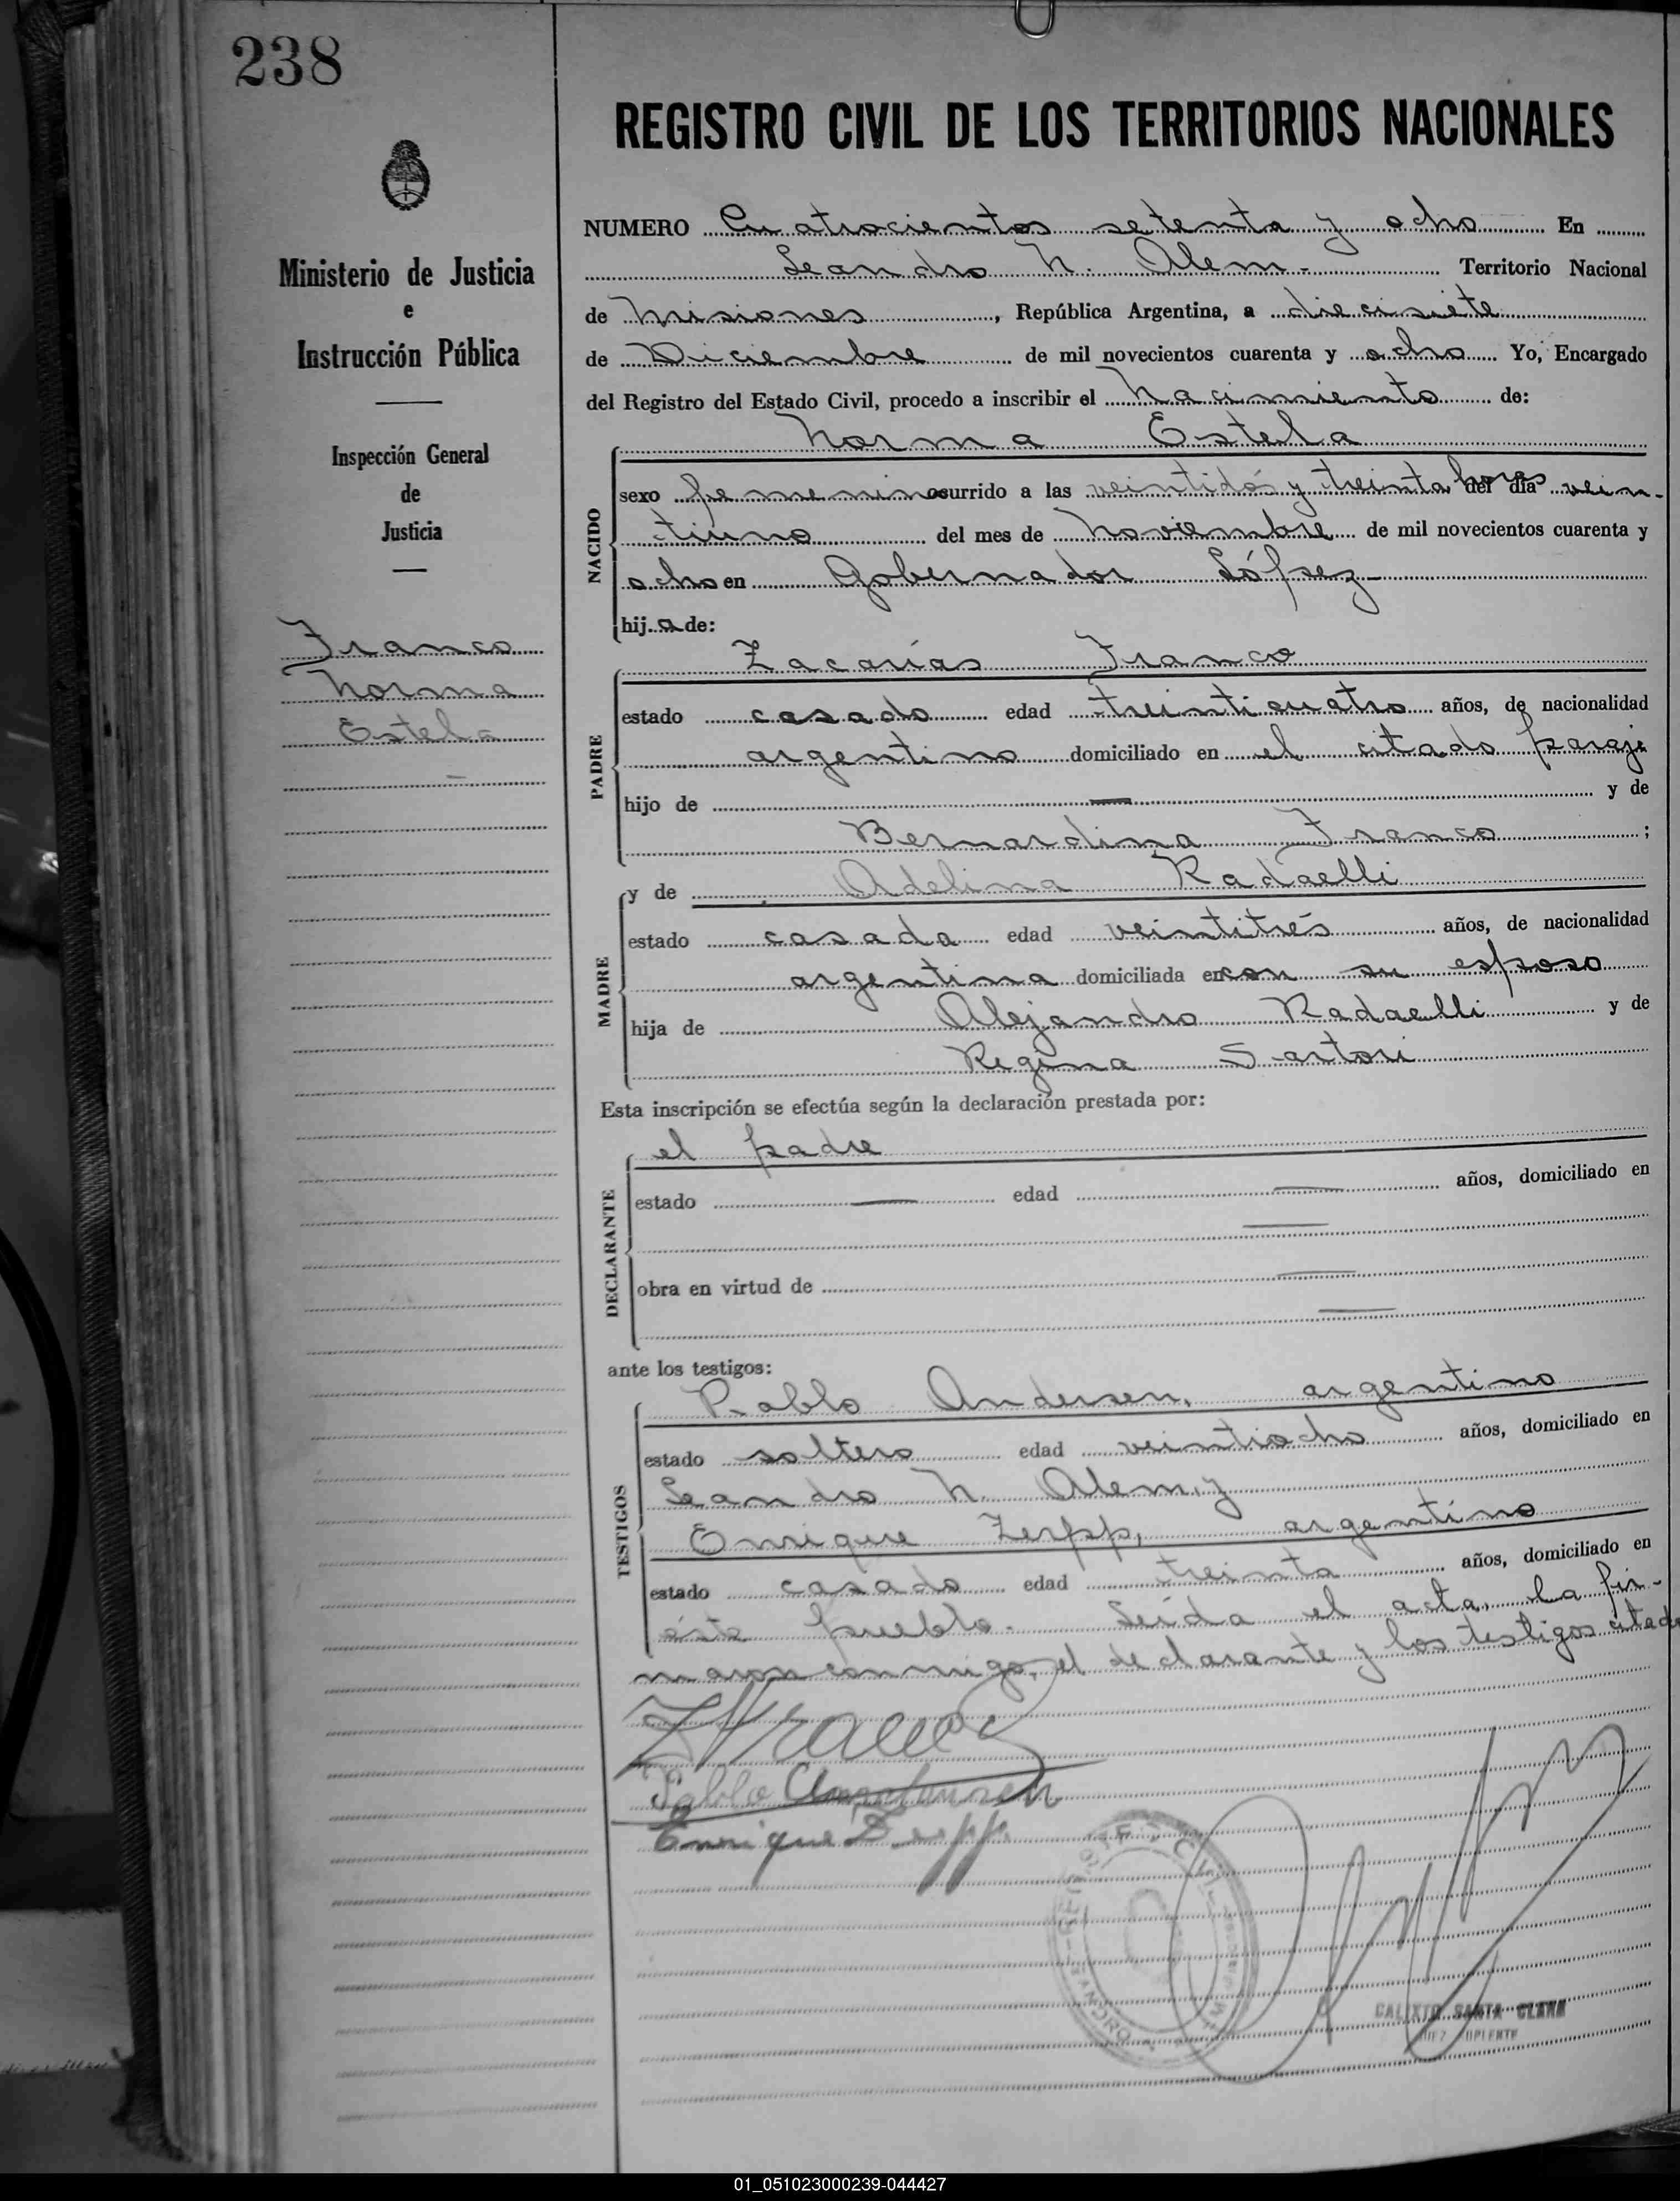 238
REGISTRO CIVIL DE LOS TERRITORIOS NACIONALES
Ministerio de Justicia
e
Instrucción Pública
Inspección General
de
Justicia
Franco
Norma
Estela
NUMERO Cuatrocientos setenta y ocho En
Leandro N. Alem. Territorio Nacional
de Misiones, República Argentina, a diecisiete
de Diciembre de mil novecientos cuarenta y ocho Yo, Encargado
del Registro del Estado Civil, procedo a inscribir el Nacimiento de:
Norma Estela
NACIDO
sexo femenino ocurrido a las veintidós y treinta horas del día vein-
tiuno del mes de Noviembre de mil novecientos cuarenta y
ocho en Gobernador López-
hij a de:
Zacarías Franco
PADRE
estado casado edad treinticuatro años, de nacionalidad
argentino domiciliado en el citado paraje
hijo de — y de
Bernardina Franco ;
y de Adelina Radaelli
MADRE
estado casada edad veintitrés años, de nacionalidad
argentina domiciliada en con su esposo
hija de Alejandro Radaelli y de
Regina Sartori
Esta inscripción se efectúa según la declaración prestada por:
el padre
DECLARANTE
estado — edad — años, domiciliado en
—
obra en virtud de —
—
ante los testigos:
Pablo Andersen, argentino
TESTIGOS
estado soltero edad veintiocho años, domiciliado en
Leandro N. Alem, y
Enrique Zerpp, argentino
estado casado edad treinta años, domiciliado en
éste pueblo. Leída el acta, la fir-
maron conmigo, el declarante y los testigos citados
ZFranco
Pablo Andersen
Enrique Zerpp
CALIXTO SANTA CLARA
JUEZ SUPLENTE
01_051023000239-044427